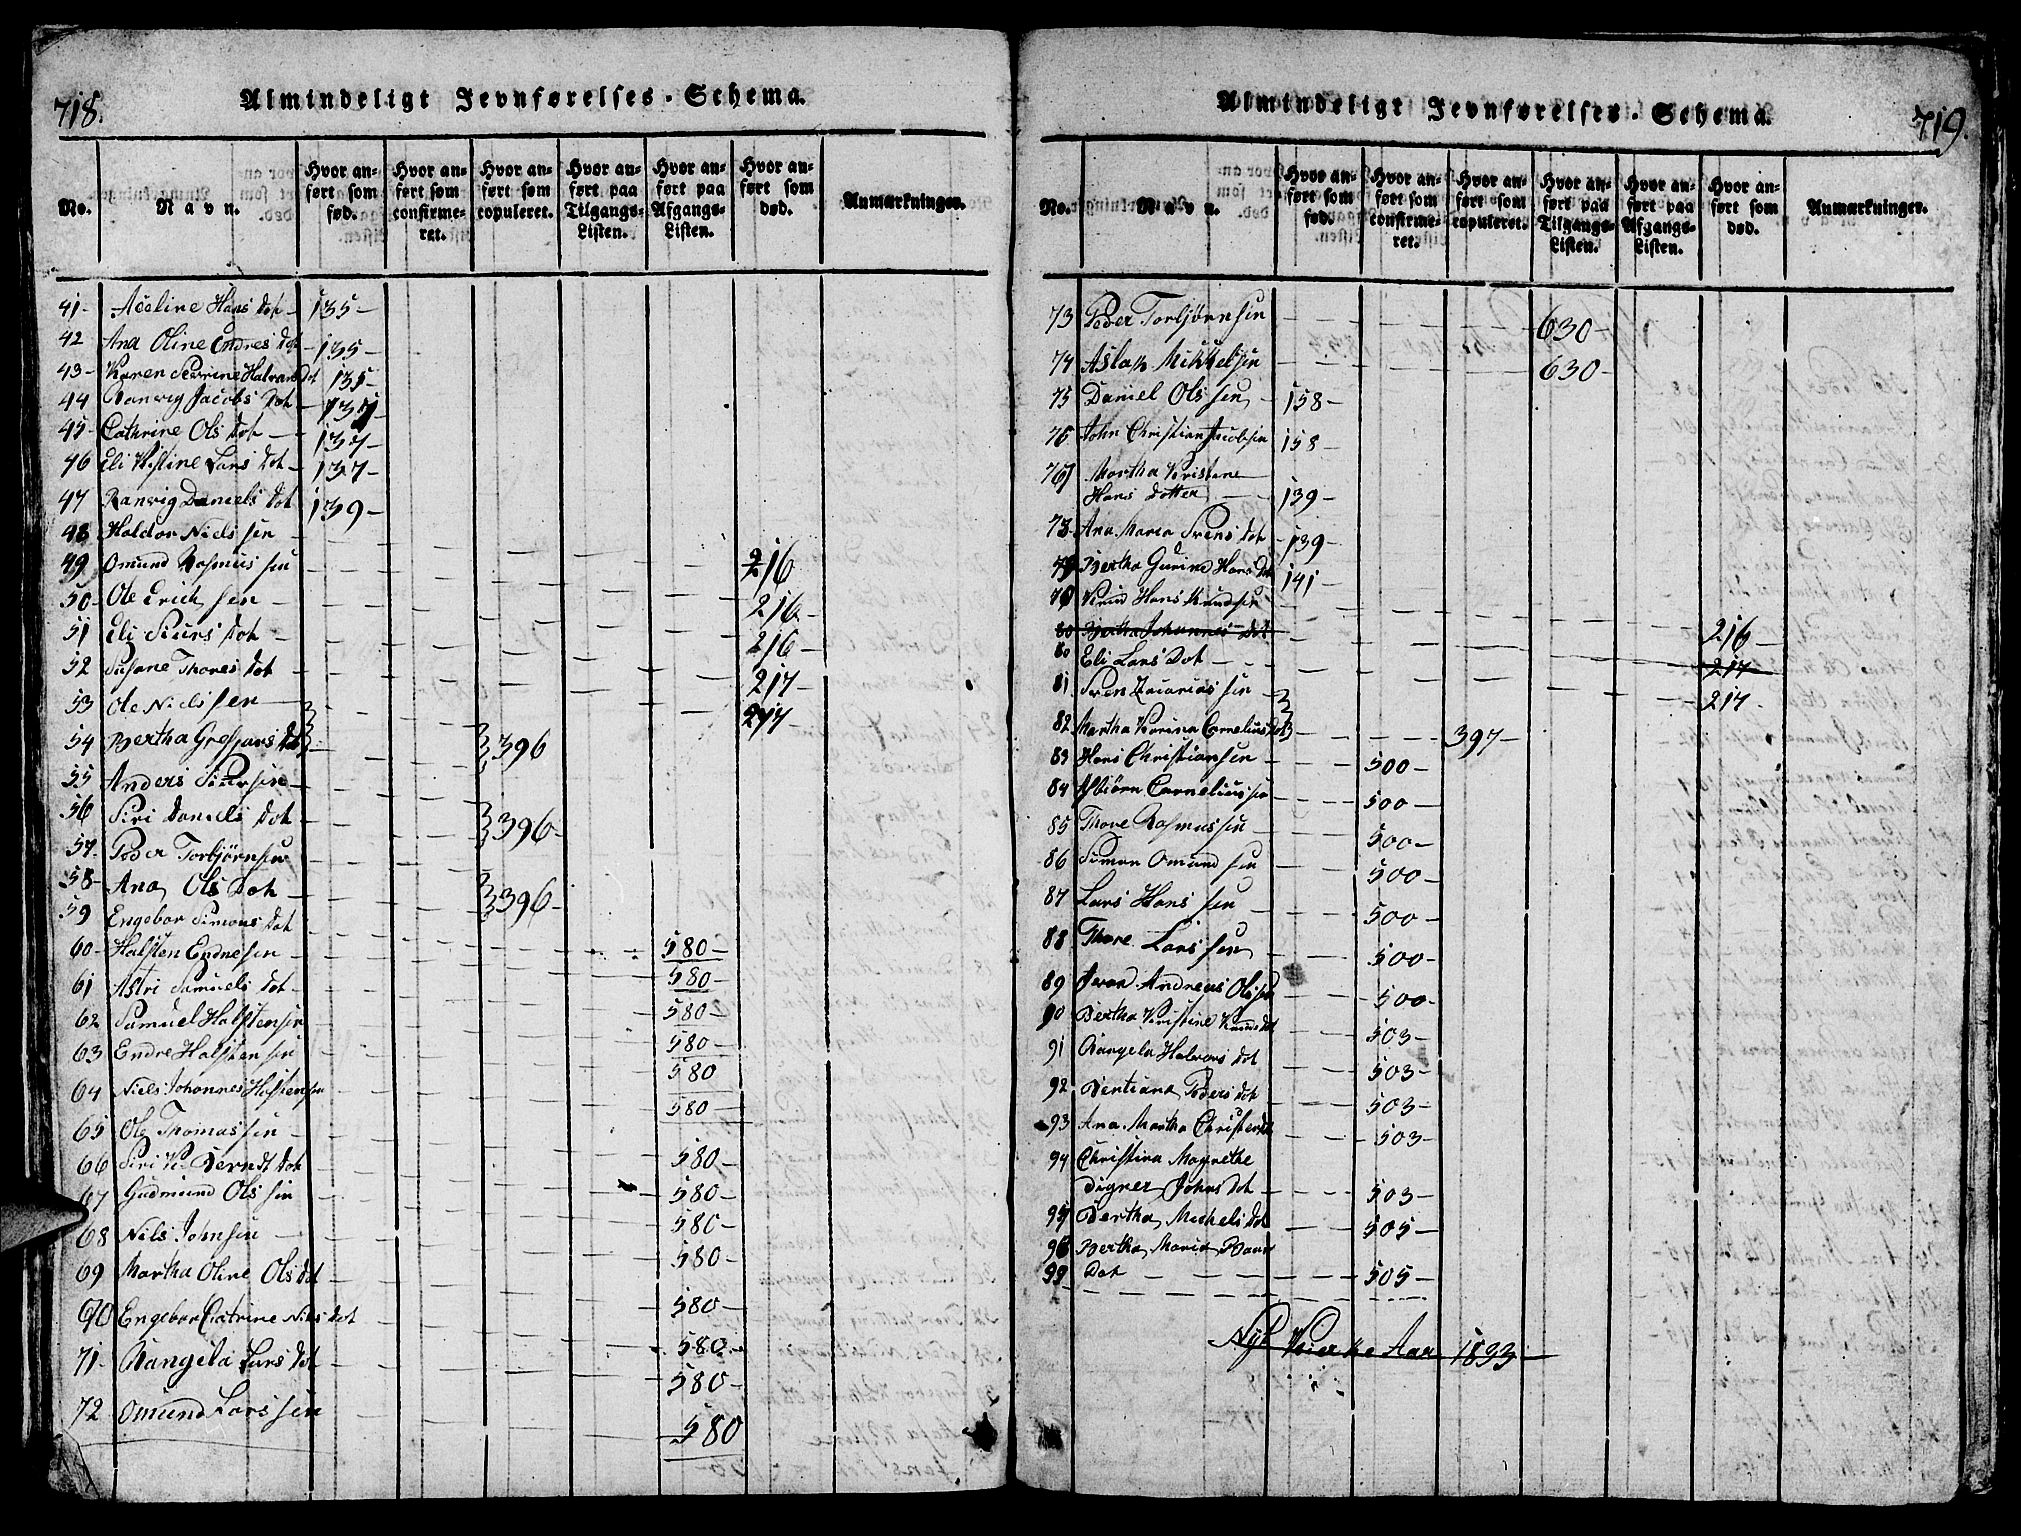 718.
Almindeligt Jevnførelses-Schema.
No.
Navn.
Hvor anført som fød.
Hvor anført som confirmeret.
Hvor anført som copuleret.
Hvor anført paa Tilgangs-Listen.
Hvor anført paa Afgangs-Listen.
Hvor anført som død.
Anmærkninger.
41- Aceline Hans Dot- 135-
42 Ana Oline Endres Dot -135-
43- Karen Serine Halvars Dot 135-
44 Ranvig Jacobs Dot
45- Cathrine Ols Dot - 137-
46 Eli Kistine Lars Dot - 137-
47 Ranvig Daniels Dot 139-
48 Haldor Niels sen 216
49 Omund Rasmus sen 216-
50- Ole Erich sen 216-
51 Eli Siurs Dot 217-
52 Susane Thores Dot 217
53 Ole Niels sen
54 Bertha Gresjars Dot 396
55 Anders Siursen
56 Siri Daniels Dot 396-
57- Peder Torbjørnsen
58- Ana Ols Dot 396-
59 Engebor Simons Dot 580-
60- Halsten Endresen 580-
61 Astri Samuels Dot 580-
62 Samuel Halstensen 580-
63 Endre Halstensen 580
64 Niels Johannes Halstensen 580-
65 Ole Thomassen 580-
66 Siri Berndt Dot 580-
67 Gudmund Ols sen 580-
68 Nils Johnsen 580-
69 Martha Oline Ols Dot 580-
70 Engebor Catrine Nils Dot 580-
71- Rangela Lars Dot 580-
72 Omund Lars sen 580
719.
Almindeligt Jevnførelses-Schema.
No.
Navn.
Hvor anført som fød.
Hvor anført som confirmeret.
Hvor anført som copuleret.
Hvor anført paa Tilgangs-Listen.
Hvor anført paa Afgangs-Listen.
Hvor anført som død.
Anmærkninger.
73 Peder Torbjørnsen 630-
74 Aslak Mikkelsen 630-
75 Daniel Ols sen 158-
76 John Christian Jacobsen 158-
Martha Kristine
Hans Dotter 139-
Ana Maria Srens Dot 139-
Bertha Gurine Hans Dot 141-
Hans Knudsen 216-
80 Bertha Johannes Dot 217
80 Eli Lars Dot 217-
81 Sren Zacarias sen
82 Martha Karina Cornelius Dot 397-
83 Hans Christiansen 500-
84 Asbiørn Cornelius sen 500-
85 Thore Rasmus sen 500-
86 Simon Omund sen 500-
87 Lars Hans sen 500-
88 Thore Lars sen 500-
89 Andreas Ols sen 500-
90 Bertha Kristine Knuds Dot 503-
91 Rangela Halvors Dot 503-
92 Bentiana Peders Dot 503-
93 Ana Martha Christens Dot 503-
94 Christina Magrethe
Digner Johns Dot 503-
95 Bertha Michels Dot 505-
96 Bertha Maria
Dot 505-
Nyt Kierke Aar 1833-